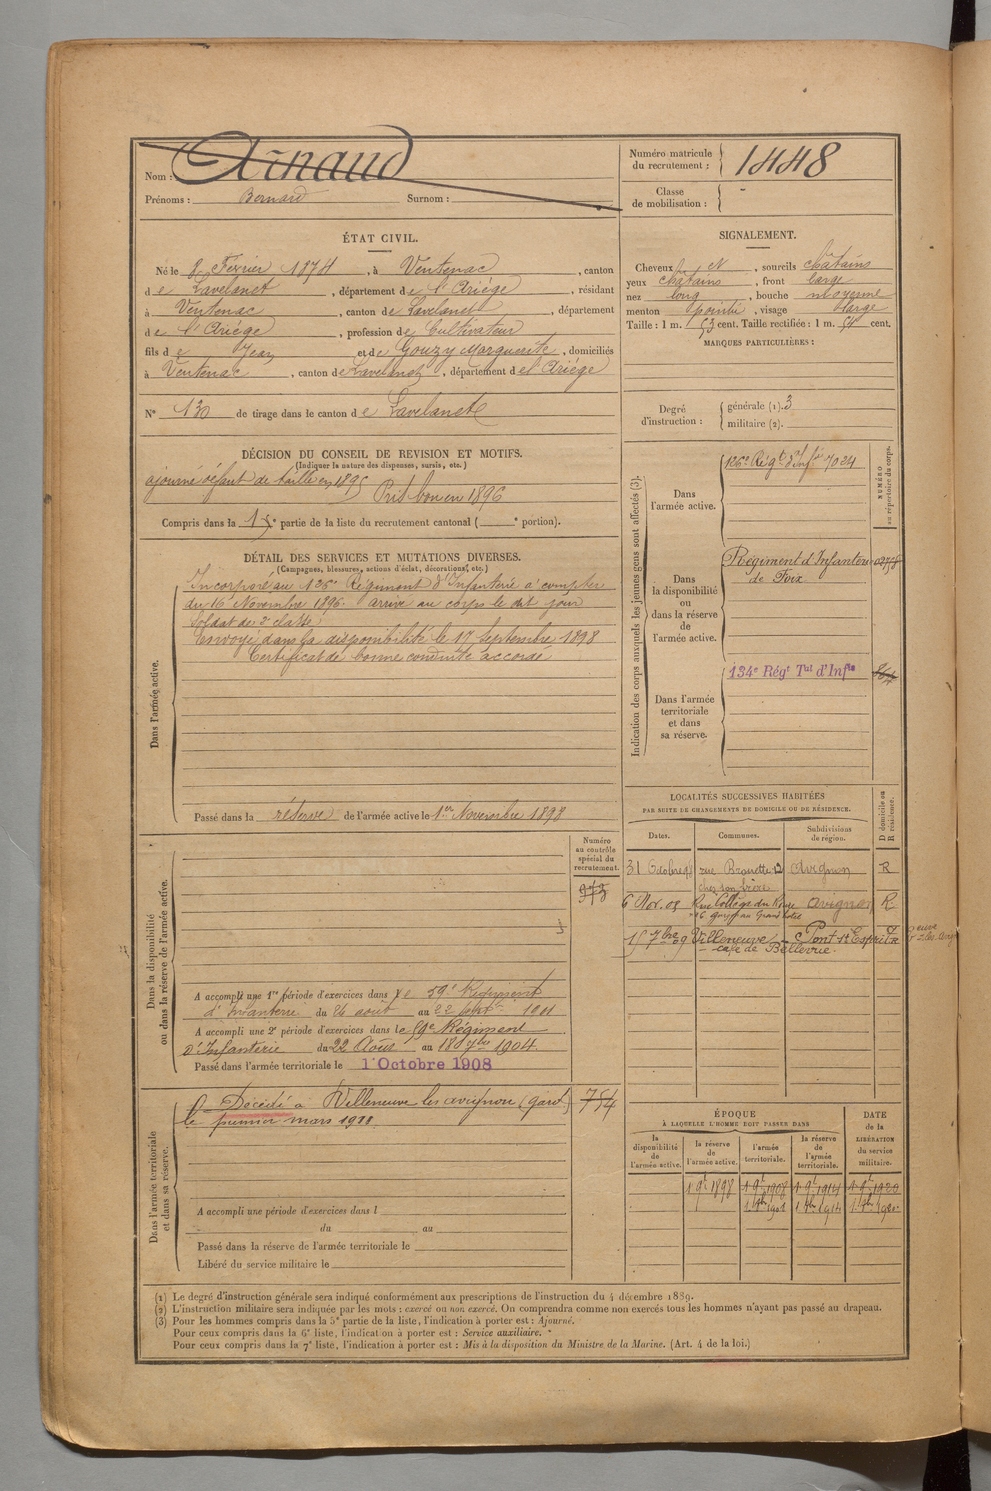 Nom : Arnaud
Prénoms : Bernard Surnom :
Numéro matricule du recrutement : 1448
Classe de mobilisation :
ÉTAT CIVIL.
Né le 8 Février 1874, à Ventenac, canton
de Lavelanet, département de l'Ariège, résidant
à Ventenac, canton de Lavelanet, département
de l'Ariège, profession de Cultivateur
fils de Jean et de Gouzy Marguerite, domiciliés
à Ventenac, canton de Lavelanet, département de l'Ariège
N° 130 de tirage dans le canton de Lavelanet
SIGNALEMENT.
Cheveux et, sourcils châtains
yeux châtains, front large
nez long, bouche moyenne
menton pointu, visage large
Taille : 1 m. 53 cent. Taille rectifiée : 1 m. 54 cent.
MARQUES PARTICULIÈRES :
Degré d'instruction : générale (1). 3
militaire (2).
DÉCISION DU CONSEIL DE REVISION ET MOTIFS.
(Indiquer la nature des dispenses, sursis, etc.)
ajourné défaut de taille en 1895
Pris bon en 1896
Compris dans la 1re partie de la liste du recrutement cantonal ( e portion).
DÉTAIL DES SERVICES ET MUTATIONS DIVERSES.
(Campagnes, blessures, actions d'éclat, décorations, etc.)
Dans l'armée active.
Incorporé au 126e Régiment d'Infanterie à compter
du 16 Novembre 1896. arrivé au corps le dit jour
Soldat de 2e classe
envoyé dans la disponibilité le 17 Septembre 1898
Certificat de bonne conduite accordé
Passé dans la réserve de l'armée active le 1er Novembre 1898
Indication des corps auxquels les jeunes gens sont affectés (3).
NUMÉRO au répertoire du corps.
Dans l'armée active.
126e Régt d'Infie 7024
Dans la disponibilité ou dans la réserve de l'armée active.
Régiment d'Infanterie
de Foix
Dans l'armée territoriale et dans sa réserve.
134e Régt Tal d'Infie
LOCALITÉS SUCCESSIVES HABITÉES
PAR SUITE DE CHANGEMENTS DE DOMICILE OU DE RÉSIDENCE.
Dates. Communes. Subdivisions de région. D domicile ou R résidence.
31 Octobre 98 rue Brouette 12 Avignon R
chez son frère
6 Nov. 08 Rue Collège du Roure Avignon R
15 7bre 09 Villeneuve Pont St Esprit R
café de Bellevue
Dans la disponibilité ou dans la réserve de l'armée active.
Numéro au contrôle spécial du recrutement.
A accompli une 1re période d'exercices dans le 59e Régiment
d'Infanterie du 26 août au 22 Sept 1901
A accompli une 2e période d'exercices dans le 59e Régiment
d'Infanterie du 22 Août au 18 7bre 1904.
Passé dans l'armée territoriale le 1 Octobre 1908
Dans l'armée territoriale et dans sa réserve.
Décédé à Villeneuve les avignon (gard) 754
le premier mars 1911
A accompli une période d'exercices dans l
du au
Passé dans la réserve de l'armée territoriale le
Libéré du service militaire le
ÉPOQUE
À LAQUELLE L'HOMME DOIT PASSER DANS
DATE de la LIBÉRATION du service militaire.
la disponibilité de l'armée active. la réserve de l'armée active. l'armée territoriale. la réserve de l'armée territoriale.
1 9bre 1898 1 9bre 1908 1 9bre 1914 1 9bre 1920
(1) Le degré d'instruction générale sera indiqué conformément aux prescriptions de l'instruction du 4 décembre 1889.
(2) L'instruction militaire sera indiquée par les mots : exercé ou non exercé. On comprendra comme non exercés tous les hommes n'ayant pas passé au drapeau.
(3) Pour les hommes compris dans la 5e partie de la liste, l'indication à porter est : Ajourné.
Pour ceux compris dans la 6e liste, l'indication à porter est : Service auxiliaire.
Pour ceux compris dans la 7e liste, l'indication à porter est : Mis à la disposition du Ministre de la Marine. (Art. 4 de la loi.)